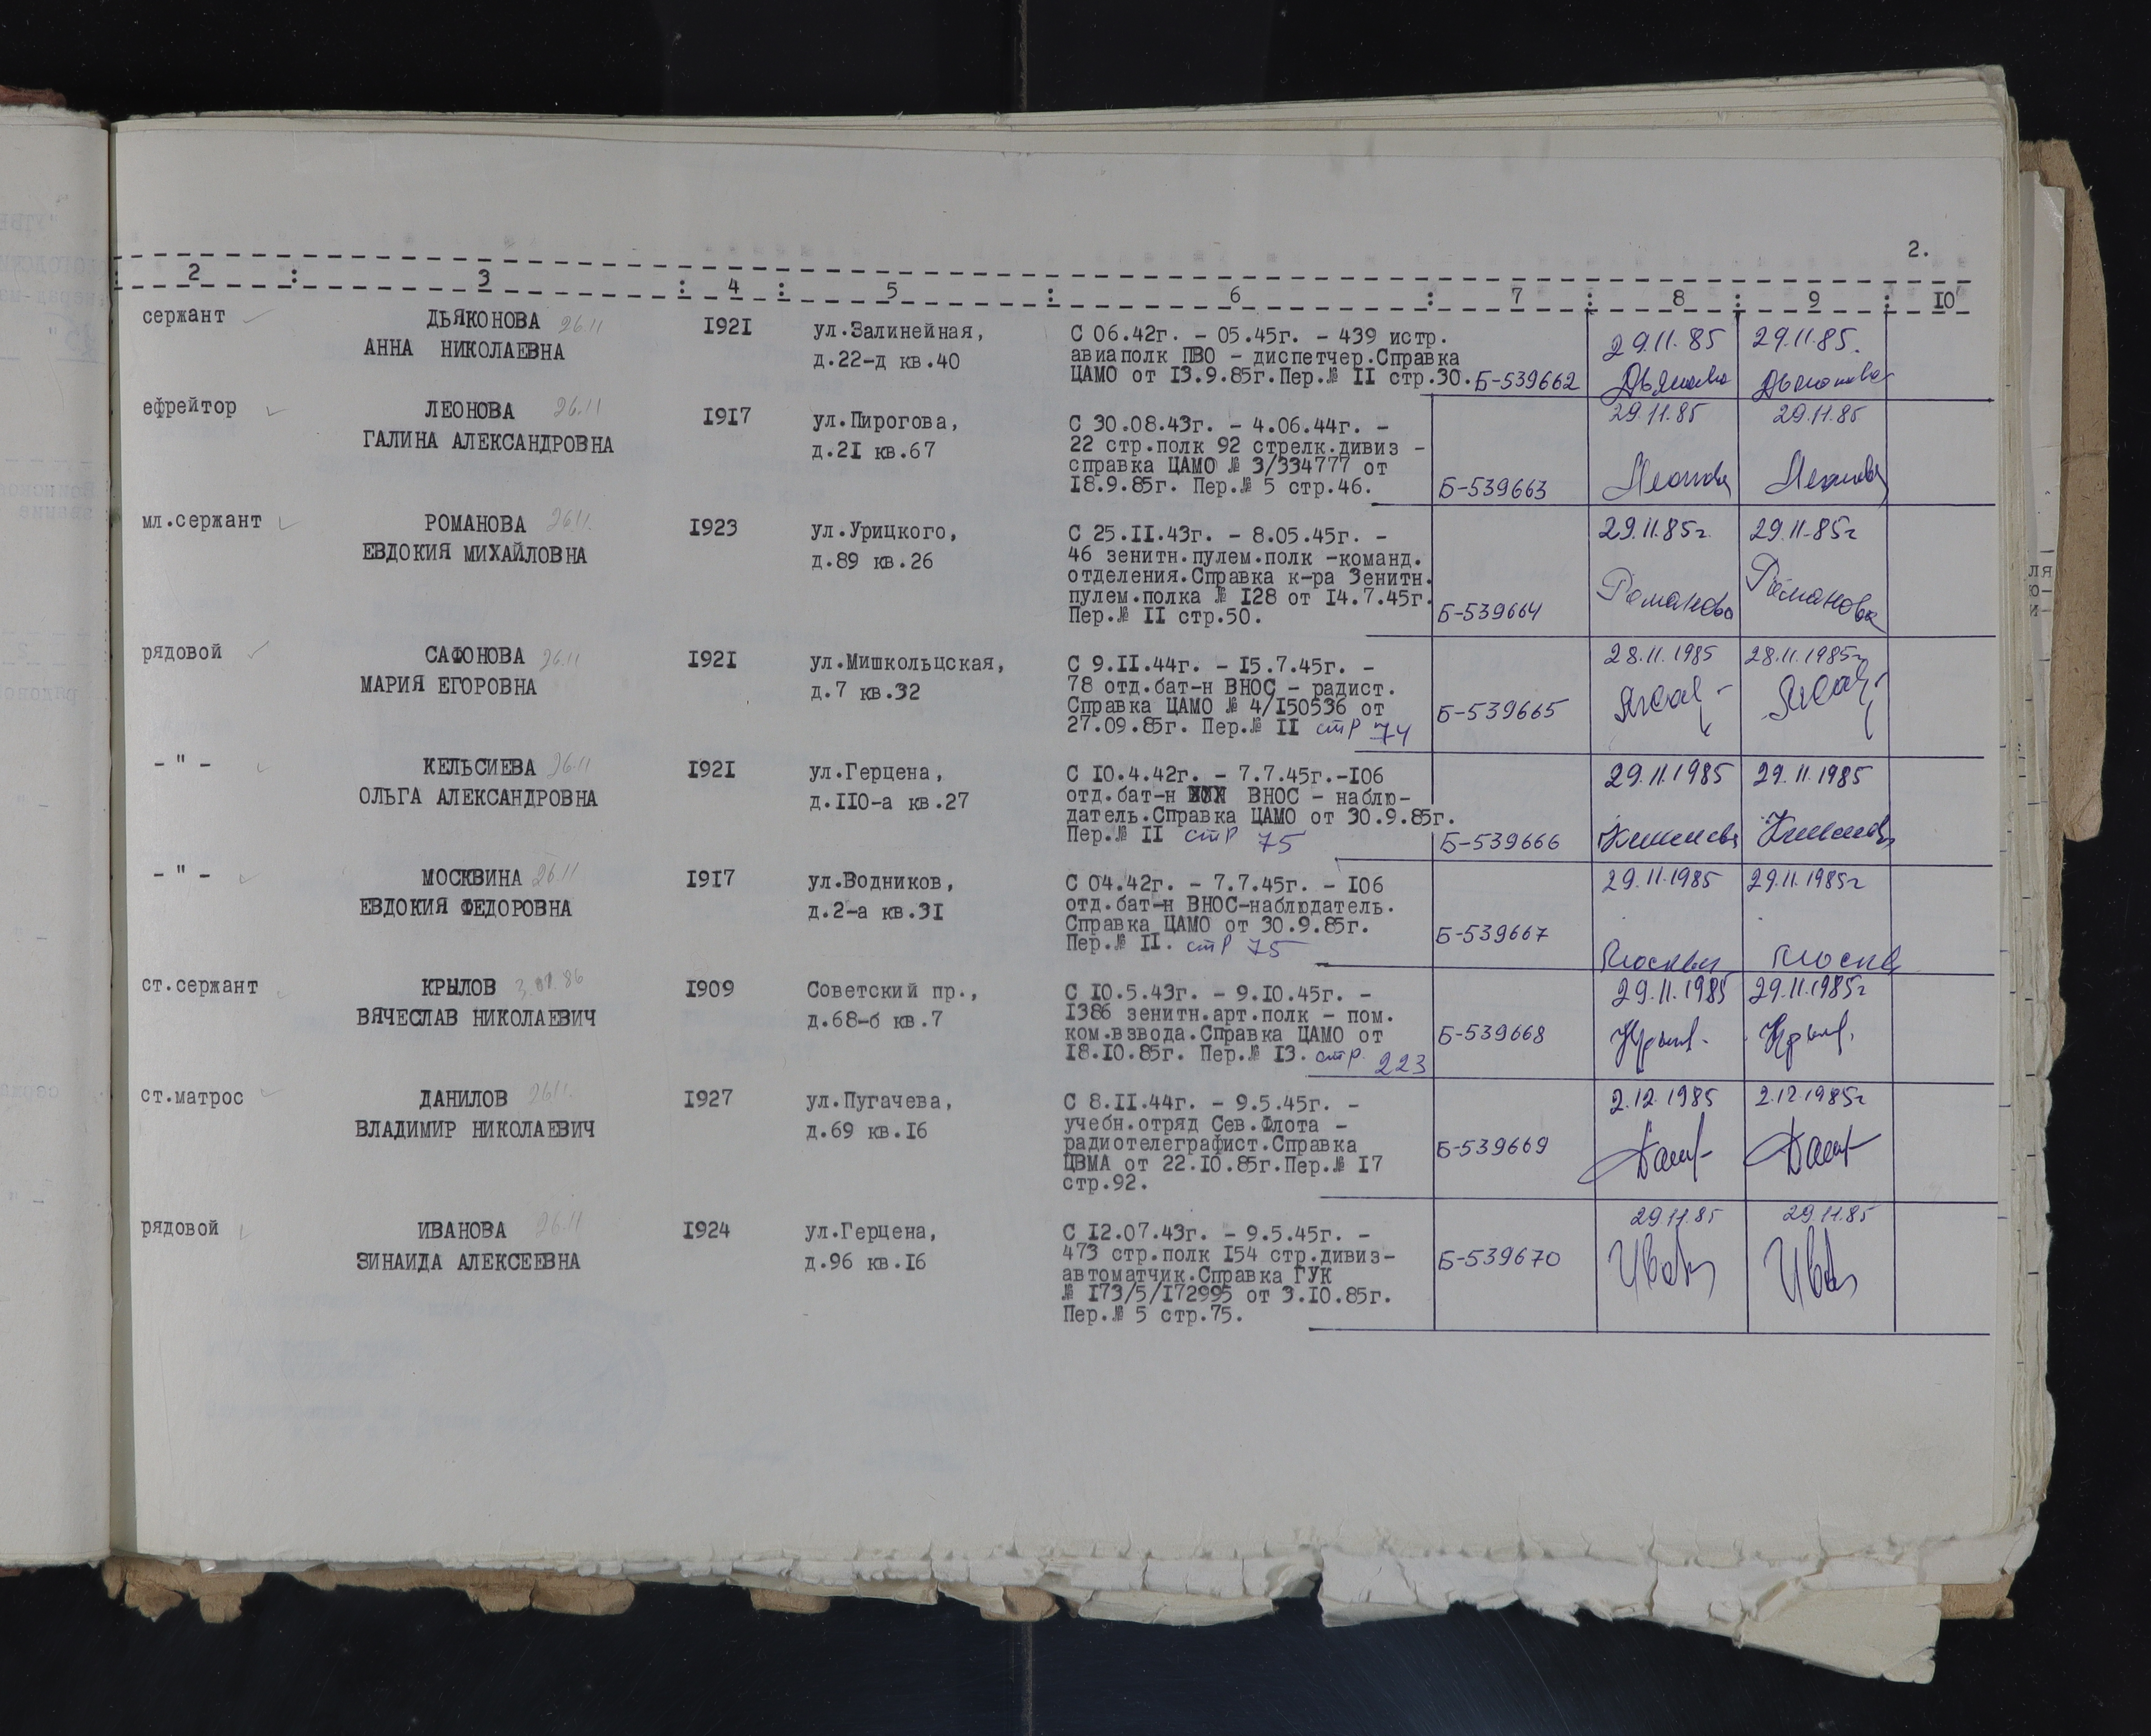 2.
2 : 3 : 4 : 5 : 6 : 7 : 8 : 9 : I0
сержант ДЬЯКОНОВА 26.11 I92I ул.Залинейная, С 06.42г. - 05.45г. - 439 истр. 29.11.85 29.11.85.
АННА НИКОЛАЕВНА д.22-д кв.40 авиаполк ПВО - диспетчер.Справка
ЦАМО от I3.9.85г.Пер.№ II стр.30. Б-539662 Дьяконова Дьяконова
ефрейтор ЛЕОНОВА 26.11 I9I7 ул.Пирогова, С 30.08.43г. - 4.06.44г. - 29.11.85 29.11.85
ГАЛИНА АЛЕКСАНДРОВНА д.2I кв.67 22 стр.полк 92 стрелк.дивиз -
справка ЦАМО № 3/334777 от
I8.9.85г. Пер.№ 5 стр.46. Б-539663 Леонова Леонова
мл.сержант РОМАНОВА 26.11. I923 ул.Урицкого, С 25.II.43г. - 8.05.45г. - 29.11.85г. 29.11-85г
ЕВДОКИЯ МИХАЙЛОВНА д.89 кв.26 46 зенитн.пулем.полк -команд.
отделения.Справка к-ра Зенитн.
пулем.полка № I28 от I4.7.45г. Романова Романова
Пер.№ II стр.50. Б-539664
рядовой САФОНОВА 26.11 I92I ул.Мишкольцская, С 9.II.44г. - I5.7.45г. - 28.11.1985 28.11.1985г
МАРИЯ ЕГОРОВНА д.7 кв.32 78 отд.бат-н ВНОС - радист.
Справка ЦАМО № 4/I50536 от Б-539665
27.09.85г. Пер.№ II стр 74
- " - КЕЛЬСИЕВА 26.11 I92I ул.Герцена, С I0.4.42г. - 7.7.45г.-I06 29.11.1985 29.11.1985
ОЛЬГА АЛЕКСАНДРОВНА д.II0-а кв.27 отд.бат-н ВНОС - наблю-
датель.Справка ЦАМО от 30.9.85г.
Пер.№ II стр 75 Б-539666
- " - МОСКВИНА 26.11 I9I7 ул.Водников, С 04.42г. - 7.7.45г. - I06 29.11.1985 29.11.1985г
ЕВДОКИЯ ФЕДОРОВНА д.2-а кв.3I отд.бат-н ВНОС-наблюдатель.
Справка ЦАМО от 30.9.85г. Б-539667
Пер.№ II. стр 75
ст.сержант КРЫЛОВ 3.01.86 I909 Советский пр., С I0.5.43г. - 9.I0.45г. - 29.11.1985 29.11.1985г
ВЯЧЕСЛАВ НИКОЛАЕВИЧ д.68-б кв.7 I386 зенитн.арт.полк - пом.
ком.взвода.Справка ЦАМО от Б-539668
I8.I0.85г. Пер.№ I3. стр. 223
ст.матрос ДАНИЛОВ 26.11. I927 ул.Пугачева, С 8.II.44г. - 9.5.45г. - 2.12.1985 2.12.1985г
ВЛАДИМИР НИКОЛАЕВИЧ д.69 кв.I6 учебн.отряд Сев.Флота -
радиотелеграфист.Справка Б-539669
ЦВМА от 22.I0.85г.Пер.№ I7
стр.92.
рядовой ИВАНОВА 26.11 I924 ул.Герцена, С I2.07.43г. - 9.5.45г. - 29.11.85 29.11.85
ЗИНАИДА АЛЕКСЕЕВНА д.96 кв.I6 473 стр.полк I54 стр.дивиз- Б-539670
автоматчик.Справка ГУК
№ I73/5/I72995 от 3.I0.85г.
Пер.№ 5 стр.75.